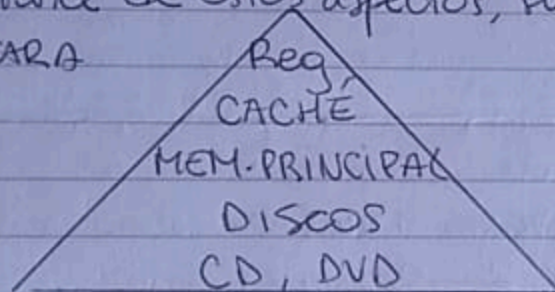 de estos aspectos,
ARA
Reg,
CACHÉ
MEM. PRINCIPAL
DISCOS
CD, DVD